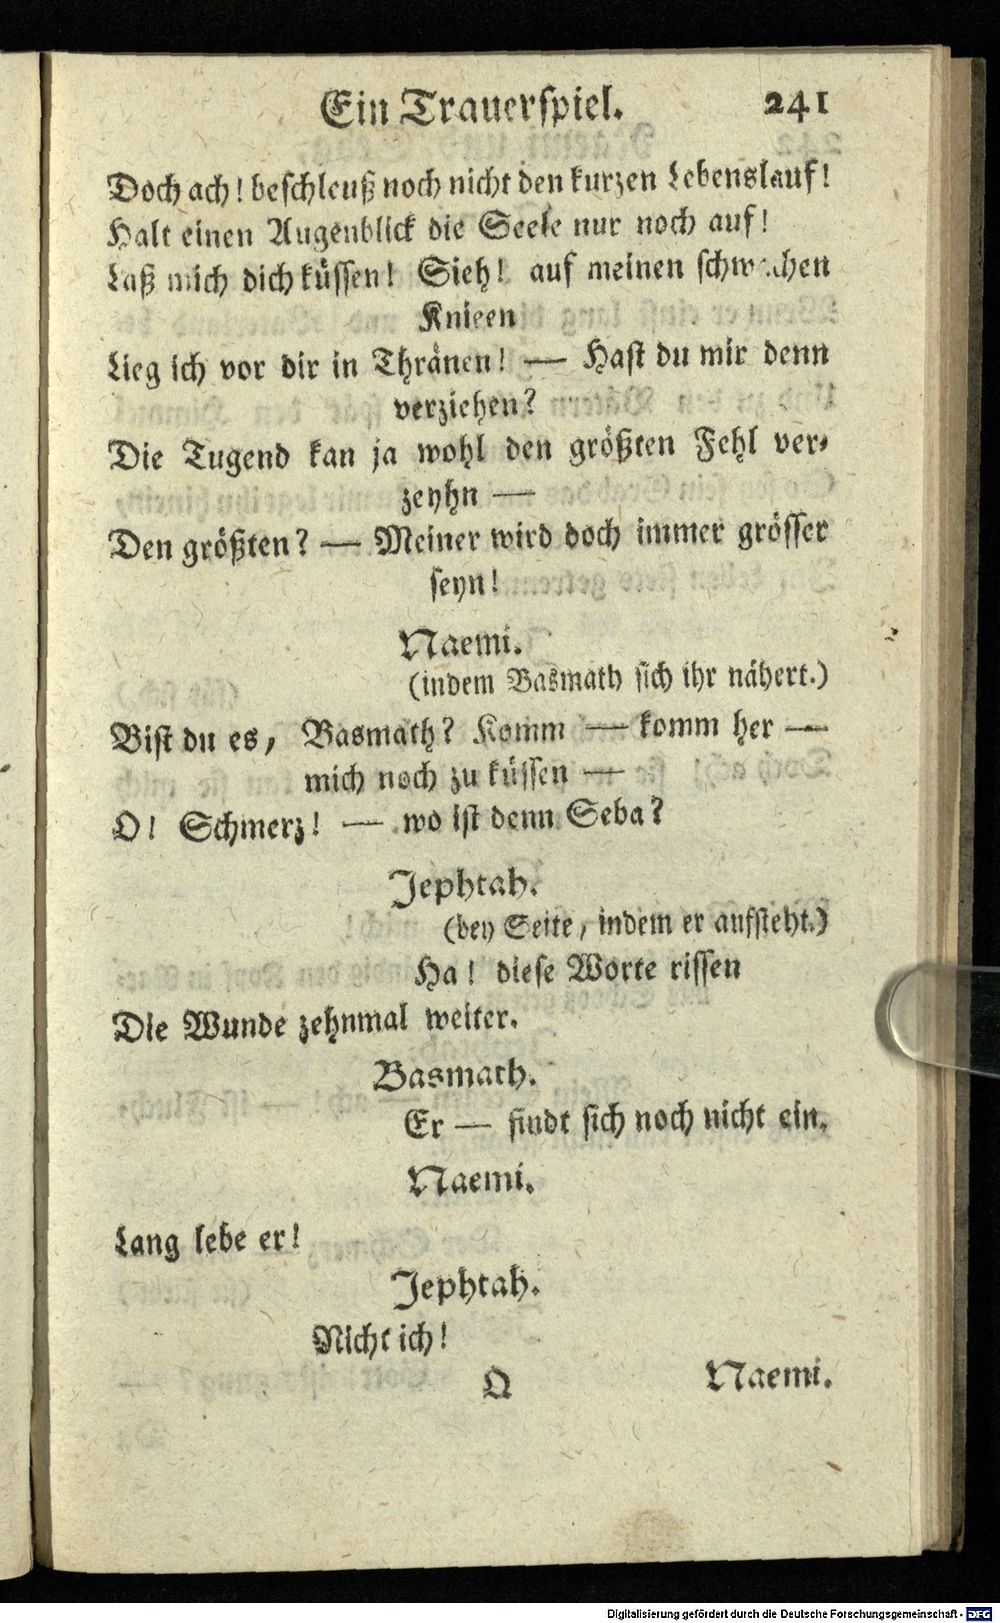 Ein Trauerspiel. 241
Doch ach! beschleuß noch nicht den kurzen Lebenslauf!
Halt einen Augenblick die Seele nur noch auf!
Laß mich dich küssen! Sieh! auf meinen schwachen
Knieen
Lieg ich vor dir in Thränen! — Hast du mir denn
verziehen?
Die Tugend kan ja wohl den größten Fehl ver-
zeyhn —
Den größten? — Meiner wird doch immer grösser
seyn!
Naemi.
(indem Basmath sich ihr nähert.)
Bist du es, Basmath? Komm — komm her —
mich noch zu küssen —
O! Schmerz! — wo ist denn Seba?
Jephtah.
(bey Seite, indem er aufsteht.)
Ha! diese Worte rissen
Die Wunde zehnmal weiter.
Basmath.
Er — findt sich noch nicht ein.
Naemi.
Lang lebe er!
Jephtah.
Nicht ich!
Q Naemi.
Digitalisierung gefördert durch die Deutsche Forschungsgemeinschaft - DFG